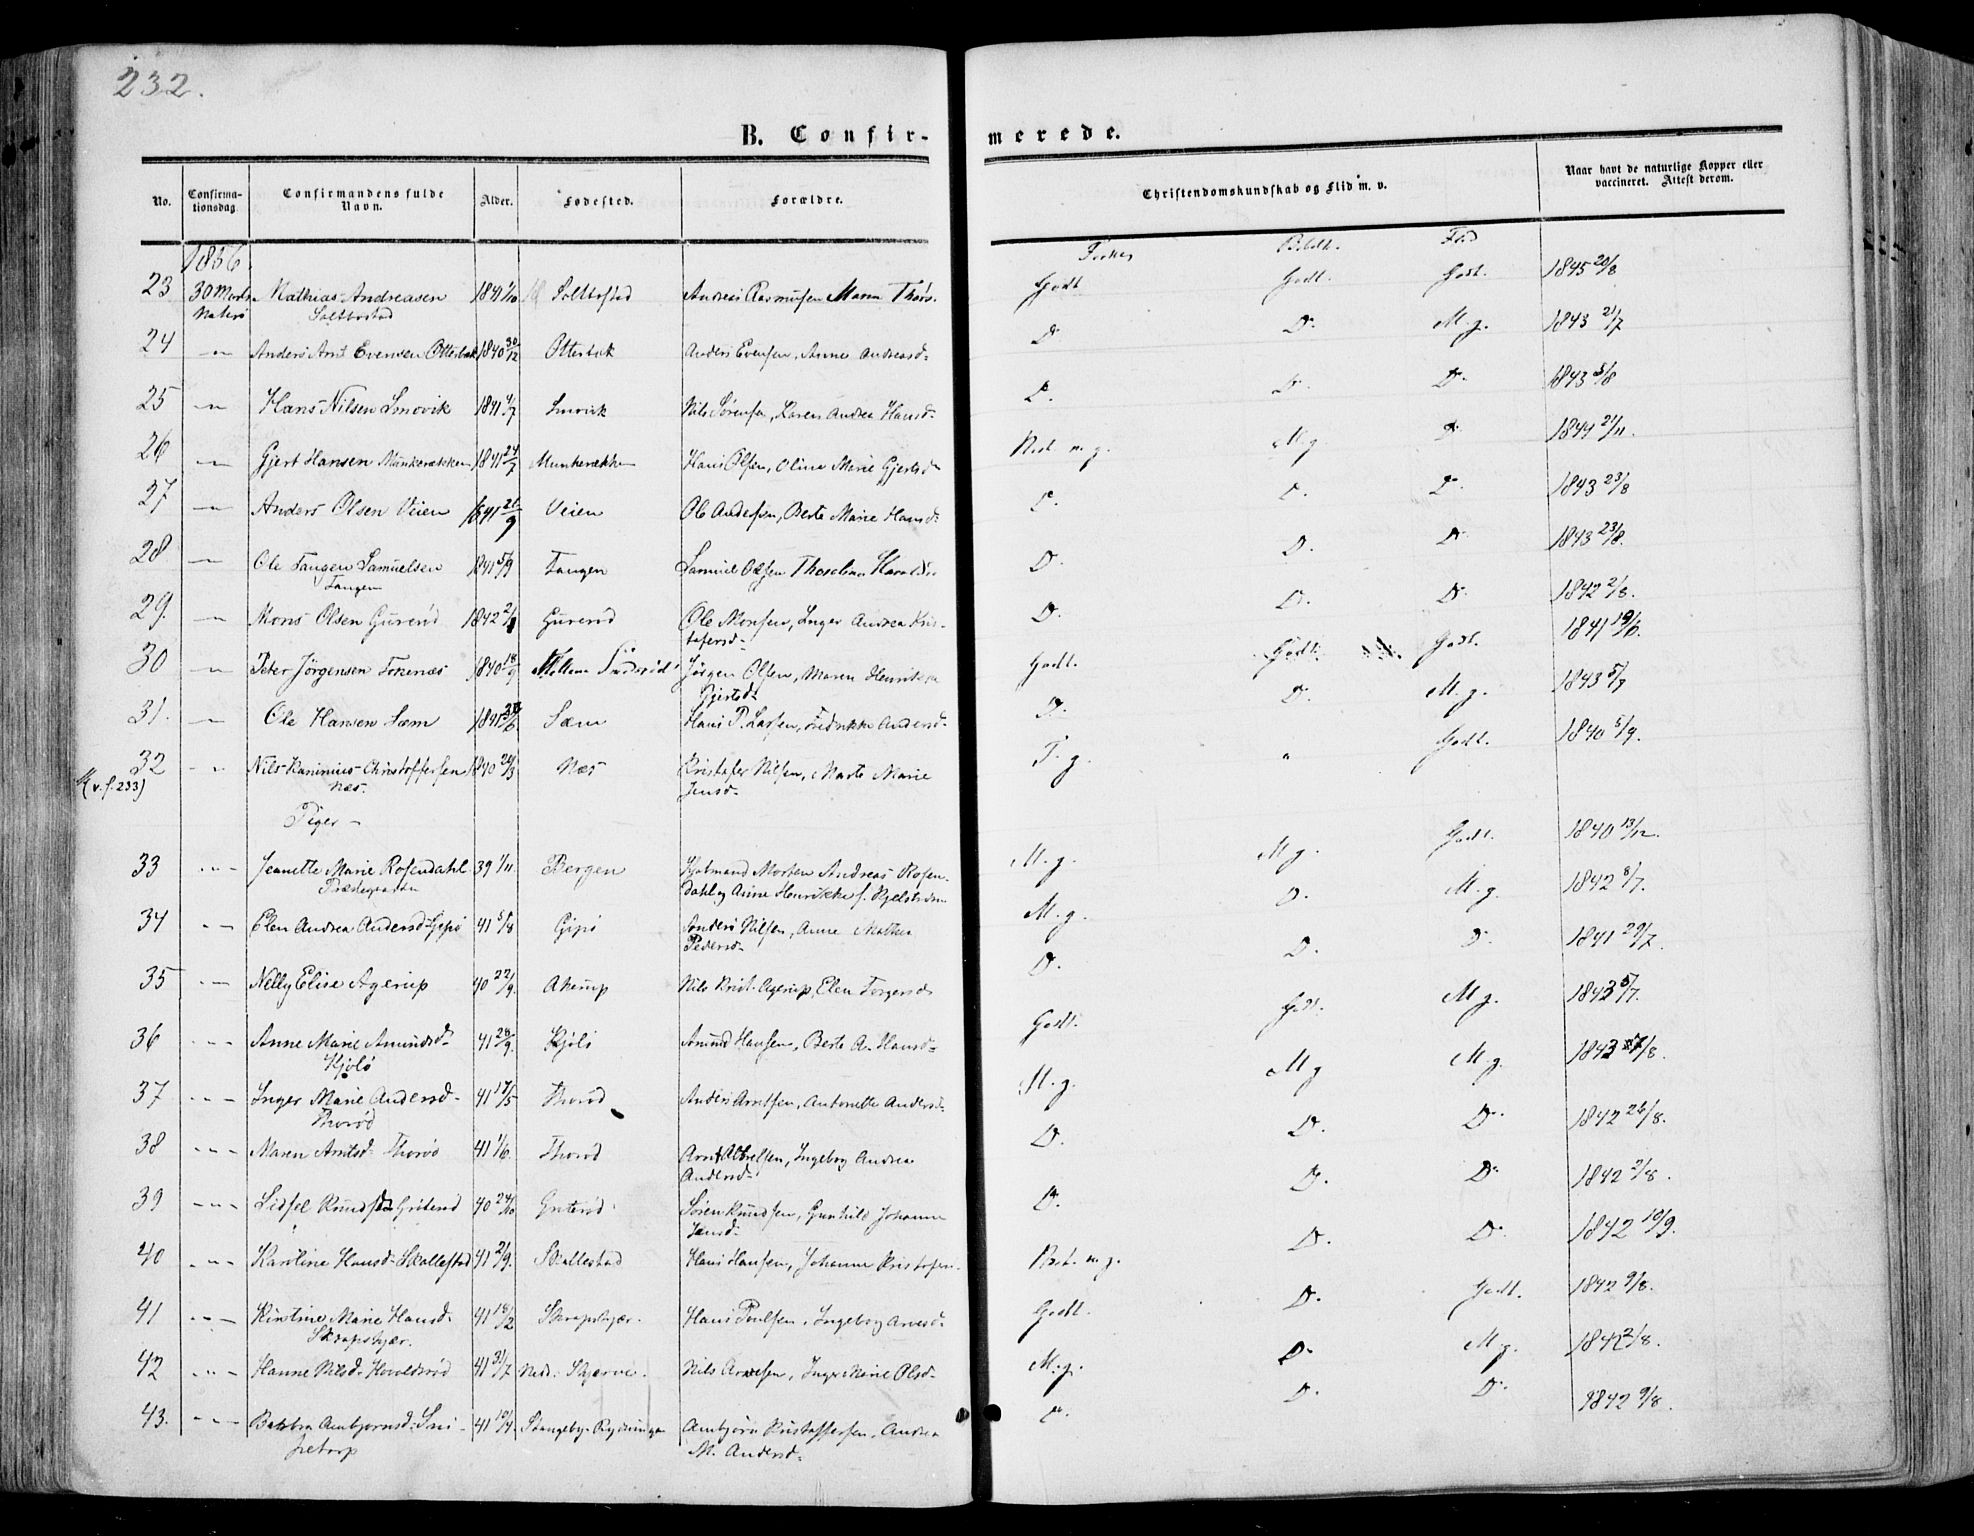 232.
B. Confir-
merede.
No.
Confirma-
tionsdag
Confirmandens fulde
Navn.
Alder.
Fødested.
Forældre.
Christendomskundskab og Flid m. v.
Naar havt de naturlige Kopper eller
vaccineret. Attest derom.
1856
23 Mathias Andreasen 1841 Solbostad Andreas Rasmussen Maren Godt Godt. Godt. 1845 20/8
Nøterø Solbostad
24 Anders Arnt Evensen Otterbek 1840 30/12 Otterbek Anders Evensen, Anne Andreasd. D. D. M.g. 1843 21/7
25 Hans Nilsen Smovik 1841 4/7 Smovik Nils Sørensen, Karen Andrea Hansd. D. D. D. 1843 /8
26 Gjert Hansen Munkerekken 1841 24/7 Munkerekken Hans Olsen, Oline Marie Gjertsd. Næst. m.g. M.g D. 1844 21/11.
27 Anders Olsen Veien 1841 21/9 Veien Ole Andersen, Berte Marie Hansd. D. D. D. 1843 23/8
28 Ole Tangen Samuelsen 1841 5/9 Tangen Samuel Olsen D. D. D. 1843 23/8.
Tangen
29. Mons Olsen Gurerød 1842 2/1 Gurerød Ole Monsen, Inger Andrea Kris- D. D. D. 1842 2/8.
tofersd.
30 Peter Jörgensen 1840 18/9 Jörgen Olsen, Maren Henrikke Godt. Godt. Godt. 1841
Gjertsd.
31. Ole Hansen Sæm 1841 Sæm Hans P. Larsen, Fredrikke Andersd. D. D. M.g. 1843
32 Nils Christoffersen 1840 Næs Kristofer Nilsen, Marte Marie T.g. " Godt. 1840 5/9.
(v. f. 233) Næs. Jensd.
Piger –
33 Jeanette Marie Rosendahl 39 1/11 Bergen Morten Andreas Rosen- M.g. M.g. Godt. 1840 13/12.
dahl og Anne Henrikke f. Kjelstrøm
34 Elen Andrea Andersd. Gipø 41 5/8 Gipø Anders Nilsen, Anne Mathea M.g. D. M.g. 1842 8/7.
Pedersd.
35 Nelly Elise Agerup 40 22/9. Akerup Nils Krist. Agerup, Elen Torgersd. D. D. D. 1841 29/7.
36 Anne Marie Amundsd. 41 28/9. Kjølø Amund Hansen, Berte A. Hansd. Godt. Godt. M.g. 1843 /7.
Kjølø
37 Inger Marie Andersd. 41 17/5 Thorød Anders Arntsen, Antonette Andersd. M.g. M.g M.g. 1843 /8.
Thorød
38 Maren Arntsd. Thorød 41 1/6. Thorød Arnt, Ingeborg Andrea D. D. D. 1842 26/8.
Andersd.
39 Knudsd. Griterød 40 24/10 Griterød Søren Knudsen, Gunhild Johanne D. D. D. 1842 2/8.
Jensd.
40 Karoline Hansd. Skallestad 41 2/9. Skallestad Hans Hansen, Johanne Kristofers. Næst. m.g. D. D. 1842 10/9.
41 Kirstine Marie Hansd. 41 18/2 Skrapekjær. Hans Poulsen, Ingeborg Arvesd. Godt. D. Godt. 1842 9/8.
Skrapekjær.
42 Hanne Nilsd. Haroldsrød 41 31/7 Ned. Skjerve. Nils Arnesen, Inger Marie Olsd. M.g. D. M.g. 1842 2/8.
43. Ambjørnsd. 41 Stangeby Ambjørn Kristoffersen, Andrea D. D. D. 1842 9/8.
M. Andersd.